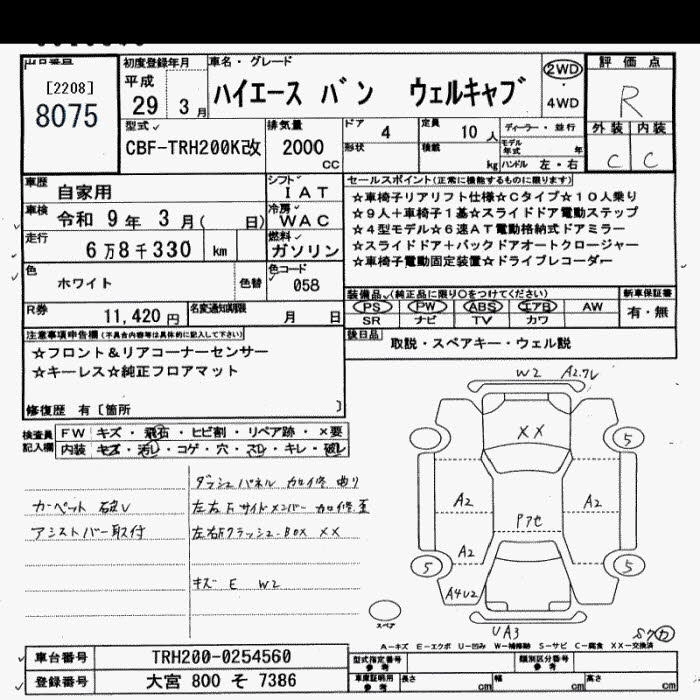 出品番号
[2208]
8075
初度登録年月
平成
29 3月
車名・グレード
ハイエース バン ウェルキャブ
2WD
4WD
評価点
R
外装 内装
C C
型式
CBF-TRH200K改
排気量
2000
cc
ドア 4
形状
定員 10 人
積載 kg
ディーラー・並行
モデル年式 年
ハンドル 左・右
車歴
自家用
車検 令和 9年 3月( 日)
走行 6万8千330 km
色 ホワイト 色替
シフト IAT
冷房 WAC
燃料 ガソリン
色コード 058
セールスポイント(正常に機能するものに限ります)
☆車椅子リアリフト仕様☆Cタイプ☆10人乗り
☆9人+車椅子1基☆スライドドア電動ステップ
☆4型モデル☆6速AT電動格納式ドアミラー
☆スライドドア+バックドアオートクロージャー
☆車椅子電動固定装置☆ドライブレコーダー
R券 11,420円
名変通知期限 月 日
装備品(純正品に限り○をつけてください)
PS PW ABS エアB AW
SR ナビ TV カワ
新車保証書
有・無
後日品
取説・スペアキー・ウェル説
注意事項申告欄(不具合内容等は具体的に記入して下さい)
☆フロント&リアコーナーセンサー
☆キーレス☆純正フロアマット
修復歴 有〔箇所 〕
検査員記入欄
FW キズ・飛石・ヒビ割・リペア跡・×要
内装 キズ・汚レ・コゲ・穴・スレ・キレ・破レ
カーペット 破レ
アシストバー取付
ダッシュパネル 加修 曲り
左右Fサイドメンバー 加修 歪
左右Fクラッシュ-BOX XX
キズ E W2
W2 A2.7L
XX
5
5
A2
A2
Pアセ
A2
5
5
A4U2
UA3
スペア
A-キズ E-エクボ U-凹み W-補修跡 S-サビ C-腐食 XX-交換済
車台番号 TRH200-0254560
登録番号 大宮 800 そ 7386
型式指定番号 参考
類別区分番号 参考
車庫証明用 参考
長さ cm 幅 cm 高さ cm